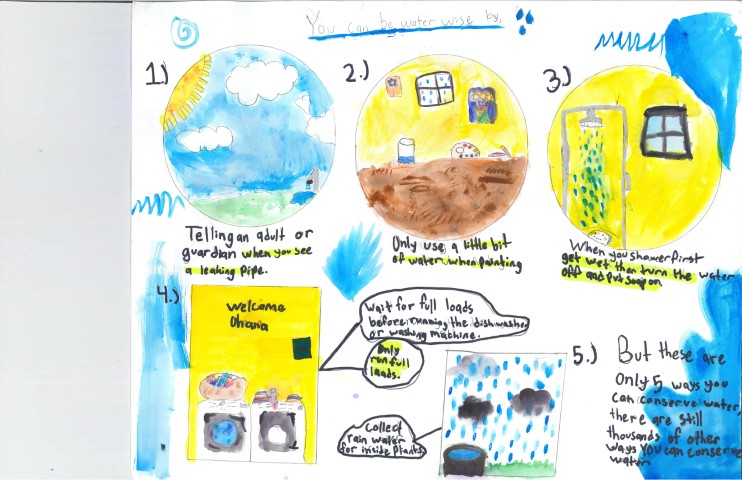 You can be water wise by,
1.)
Telling an adult or
guardian when you see
a leaking pipe.
2.)
Only use a little bit
of water when painting
3.)
When you shower first
get wet then turn the water
off and put soap on
4.)
Welcome
Ohana
Wait for full loads
before running the dishwasher
or washing machine.
Only
run full
loads.
Collect
rain water
for inside plants
5.)
But these are
Only 5 ways you
can conserve water,
there are still
thousands of other
ways you can conserve
water